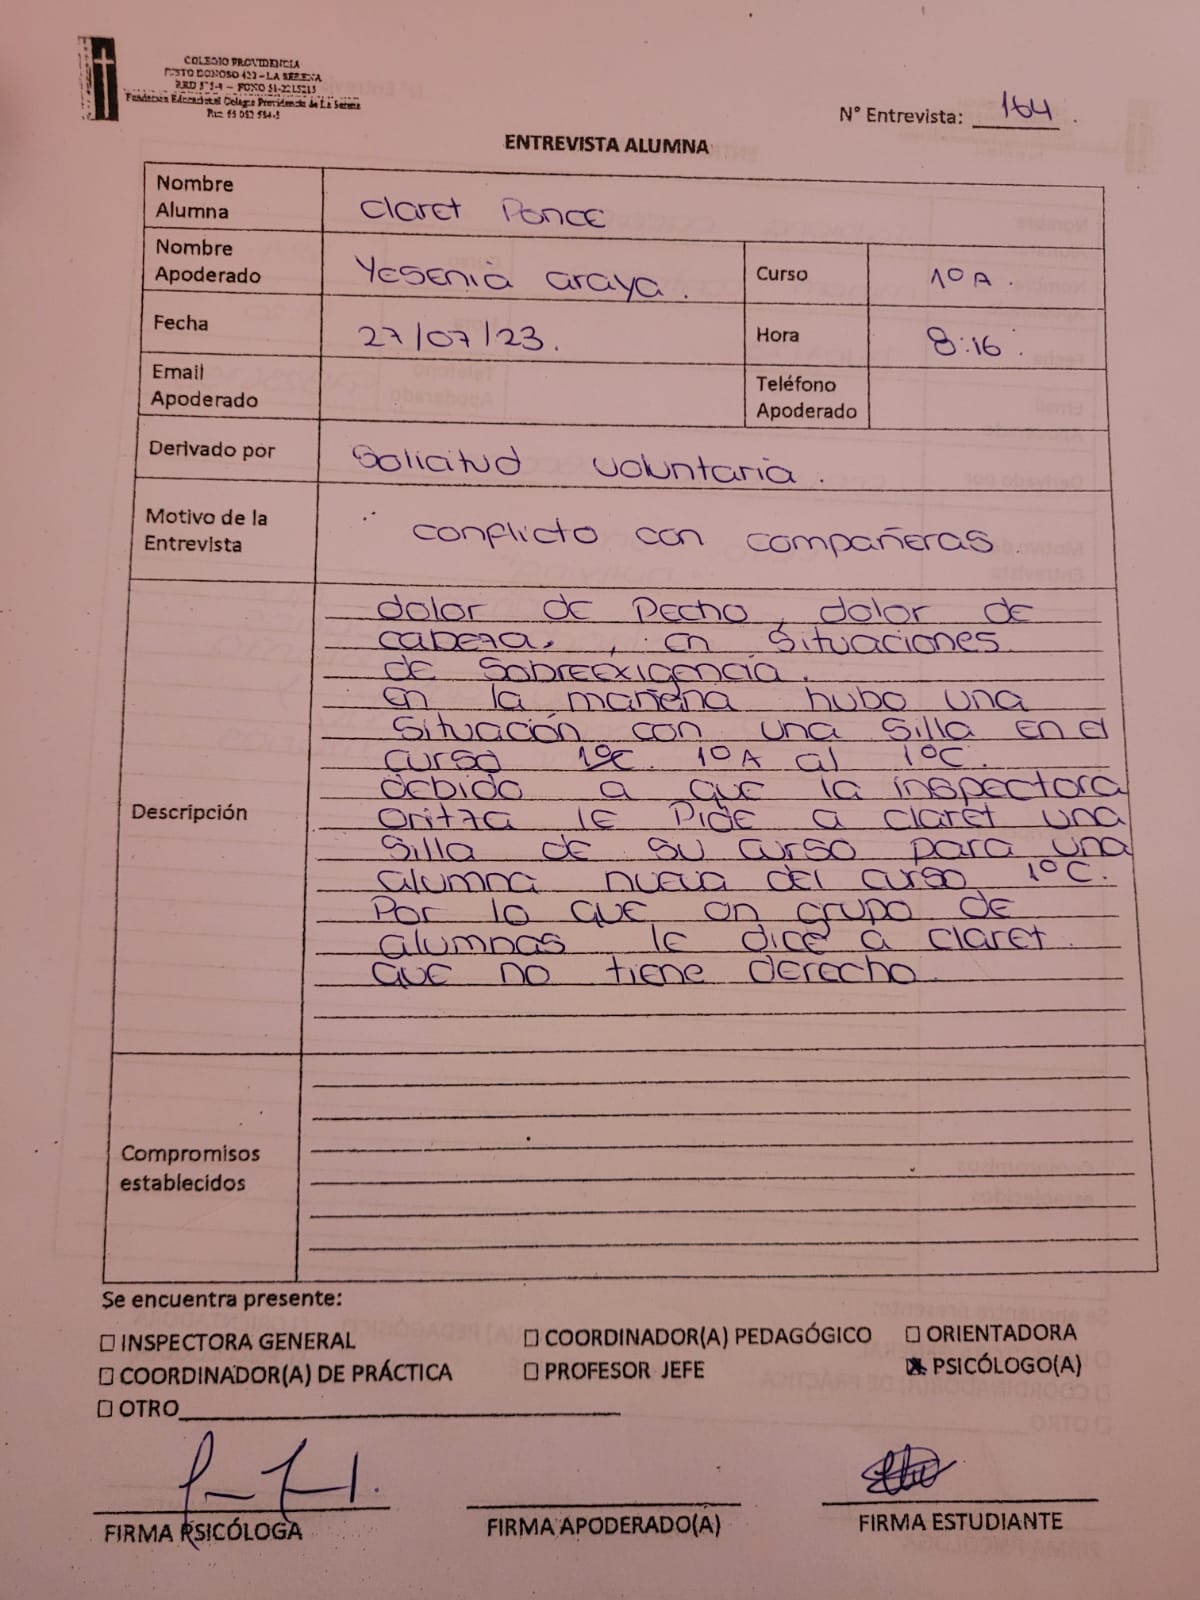 COLEGIO PROVIDENCIA
JUSTO DONOSO 420 - LA SERENA
Fundación Educacional Colegio Providencia de La Serena
N° Entrevista: 164.
ENTREVISTA ALUMNA
Nombre Alumna Claret Ponce
Nombre Apoderado Yesenia Araya. Curso 1º A.
Fecha 27/07/23. Hora 8:16.
Email Apoderado Teléfono Apoderado
Derivado por Solicitud voluntaria.
Motivo de la Entrevista conflicto con compañeras.
Descripción
dolor de Pecho, dolor de
cabeza, , en situaciones
de sobreexigencia.
en la mañena hubo una
situación con una silla en el
curso 1ºC. 1º A al 1ºC.
debido a que la inspectora
Oritza le Pide a claret una
silla de su curso para una
alumna nueva del curso 1ºC.
Por lo que un grupo de
alumnas le dice a claret
que no tiene derecho.
Compromisos establecidos
Se encuentra presente:
☐ INSPECTORA GENERAL ☐ COORDINADOR(A) PEDAGÓGICO ☐ ORIENTADORA
☐ COORDINADOR(A) DE PRÁCTICA ☐ PROFESOR JEFE ☒ PSICÓLOGO(A)
☐ OTRO
FIRMA PSICÓLOGA FIRMA APODERADO(A) FIRMA ESTUDIANTE